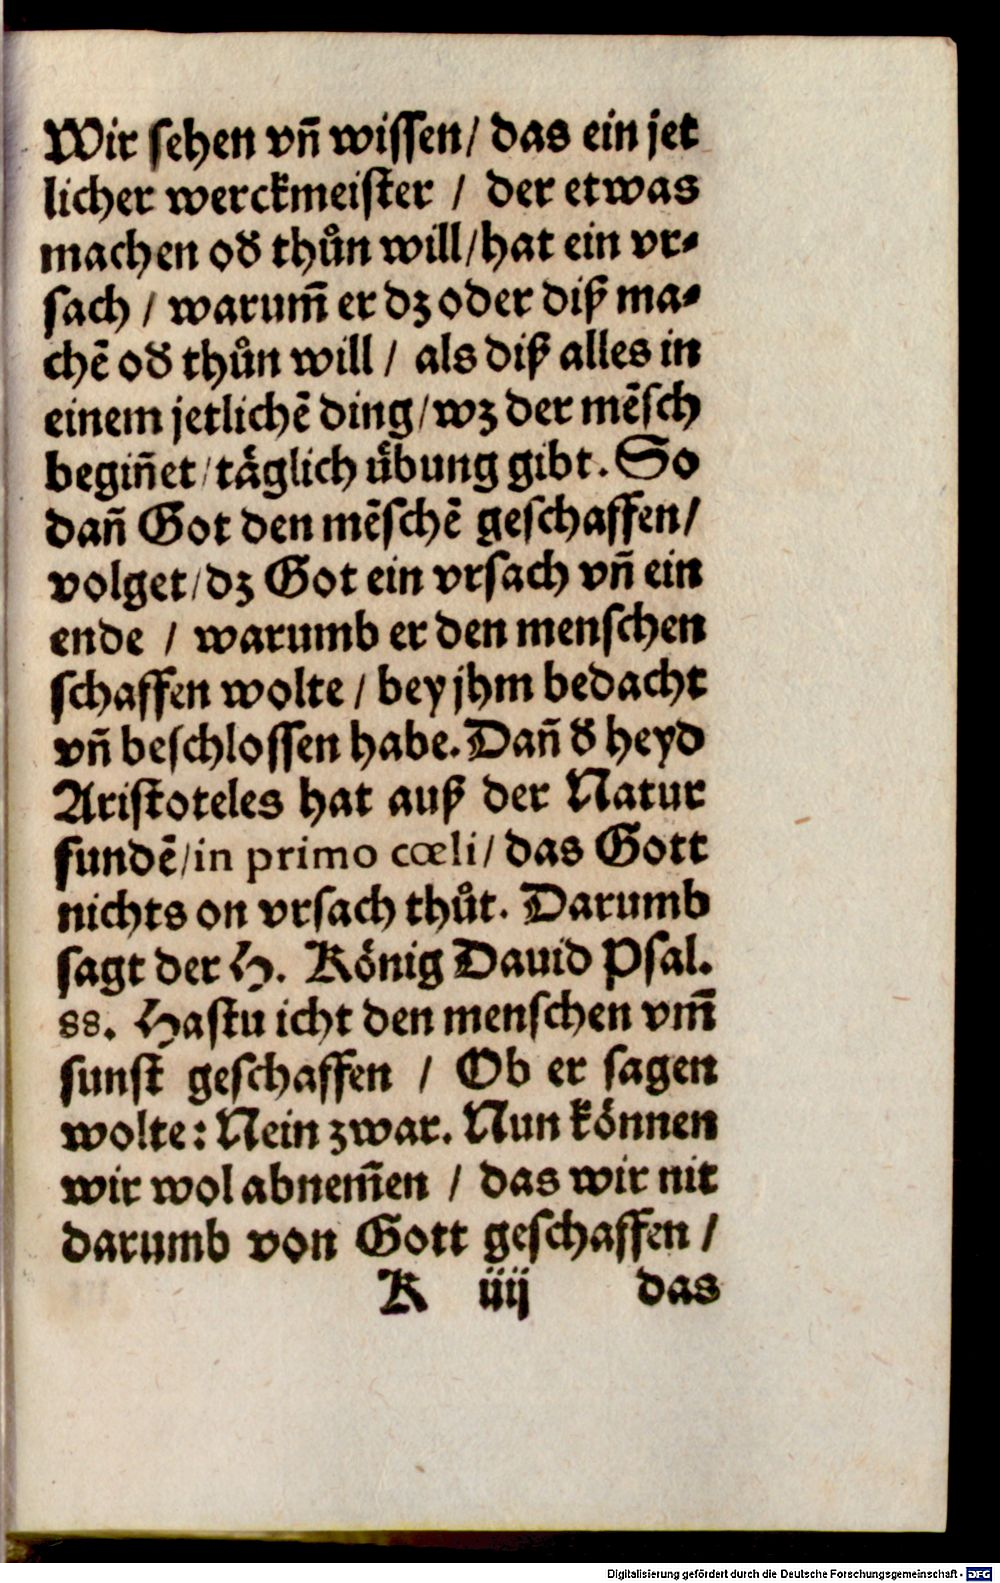 Wir sehen vñ wissen/ das ein jet
licher werckmeister / der etwas
machen oď thůn will/hat ein vr⸗
sach / warum̃ er dz oder diß ma⸗
chẽ oď thůn will / als diß alles in
einem jetlichẽ ding/wz der mẽsch
begiñet/täglich übung gibt. So
dañ Got den mẽschẽ geschaffen/
volget/dz Got ein vrsach vñ ein
ende / warumb er den menschen
schaffen wolte / bey jhm bedacht
vñ beschlossen habe. Dañ ď heyd
Aristoteles hat auß der Natur
fundẽ/in primo cœli/das Gott
nichts on vrsach thůt. Darumb
sagt der H. König Dauid Psal.
88. Hastu icht den menschen vm̃
sunst geschaffen / Ob er sagen
wolte: Nein zwar. Nun können
wir wol abnem̃en / das wir nit
darumb von Gott geschaffen /
K iiij das
Digitalisierung gefördert durch die Deutsche Forschungsgemeinschaft - DFG